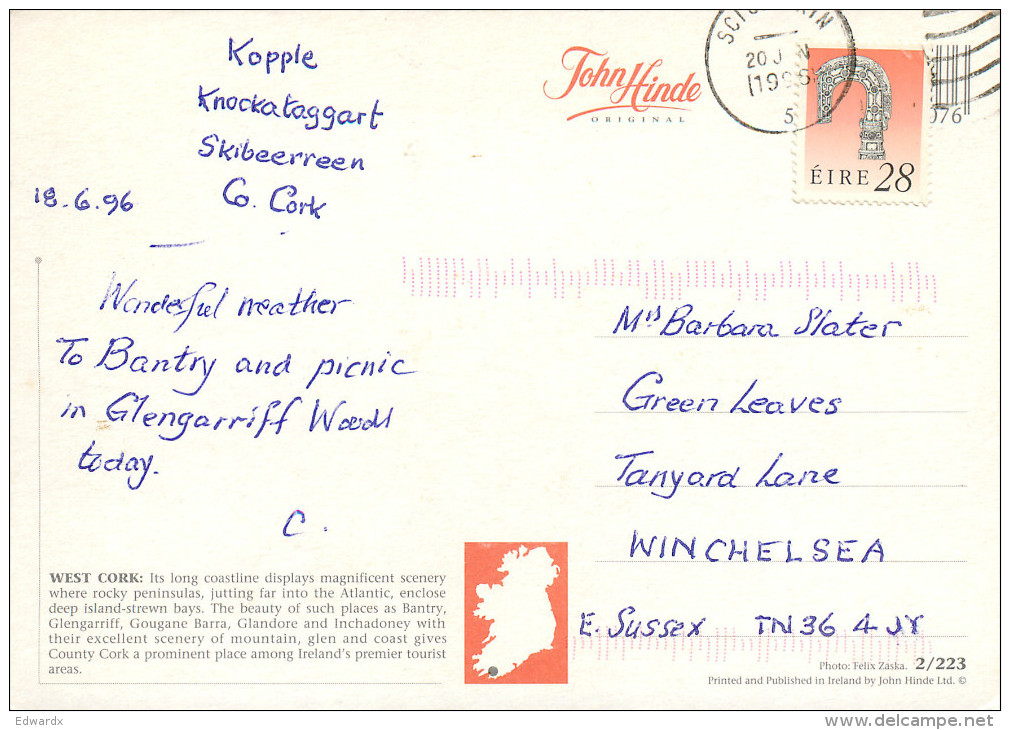 Kopple
Knockataggart
Skibeerreen
Co. Cork
18.6.96
Wonderful weather
To Bantry and picnic
in Glengarriff Woods
today.
C.
WEST CORK: Its long coastline displays magnificent scenery
where rocky peninsulas, jutting far into the Atlantic, enclose
deep island-strewn bays. The beauty of such places as Bantry,
Glengarriff, Gougane Barra, Glandore and Inchadoney with
their excellent scenery of mountain, glen and coast gives
County Cork a prominent place among Ireland's premier tourist
areas.
John Hinde
ORIGINAL
20
5
ÉIRE 28
076
Mrs Barbara Slater
Green Leaves
Tanyard Lane
WINCHELSEA
E. Sussex TN36 4JY
Photo: Felix Zaska. 2/223
Printed and Published in Ireland by John Hinde Ltd. ©
Edwardx
www.delcampe.net